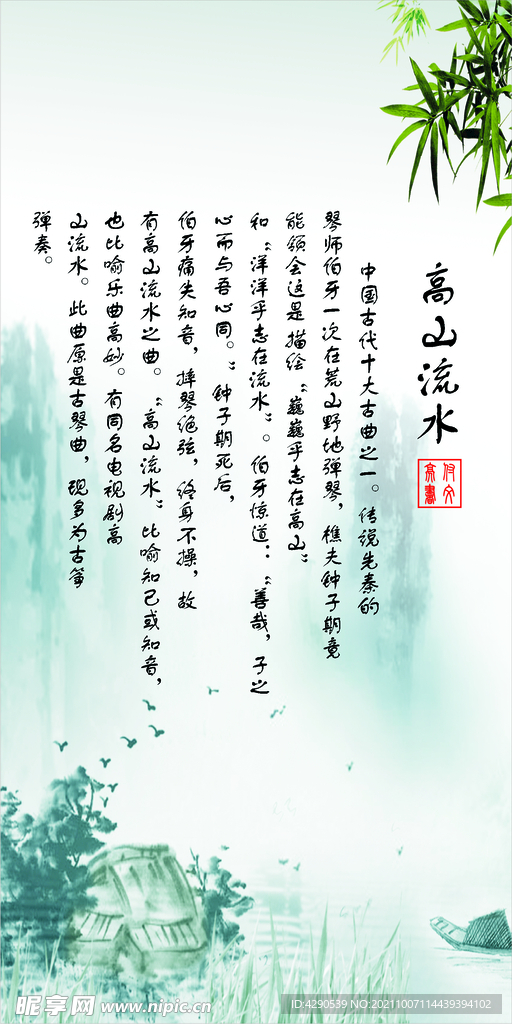 高山流水
中国古代十大古曲之一。传说先秦的
琴师伯牙一次在荒山野地弹琴，樵夫钟子期竟
能领会这是描绘“巍巍乎志在高山”
和“洋洋乎志在流水”。伯牙惊道：“善哉，子之
心而与吾心同。”钟子期死后，
伯牙痛失知音，摔琴绝弦，终身不操，故
有高山流水之曲。“高山流水”比喻知己或知音，
也比喻乐曲高妙。有同名电视剧高
山流水。此曲原是古琴曲，现多为古筝
弹奏。
昵享网 www.nipic.cn
ID:4290539 NO:20211007114439394102